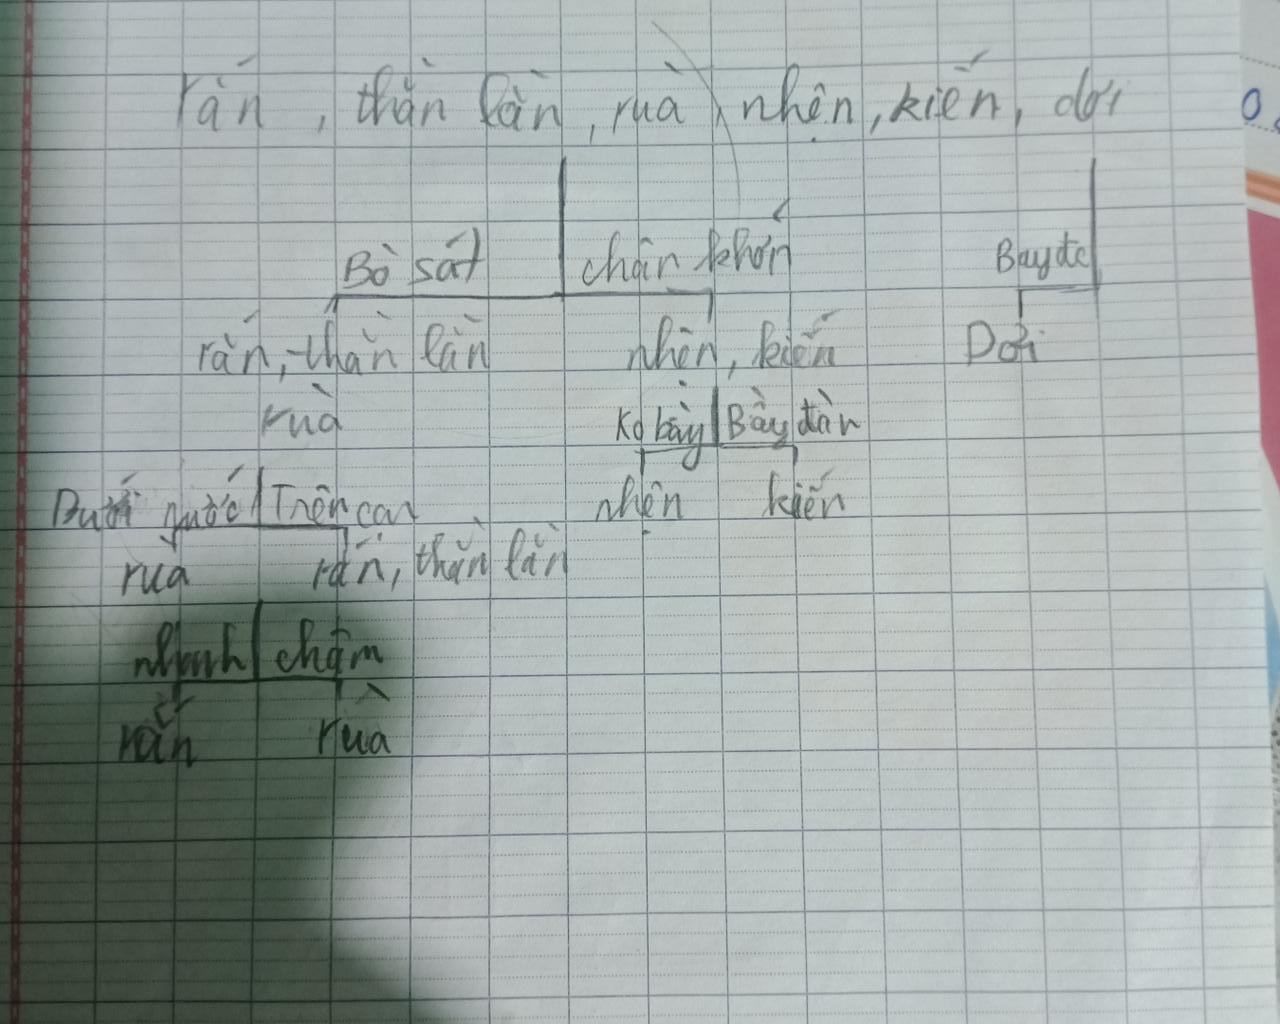 rắn, thằn lằn, rùa, nhện, kiến, dơi
Bò sát chân khớp Bay đc
rắn, thằn lằn nhện, kiến Dơi
rùa
Ko bầy Bầy đàn
nhện kiến
Dưới nước Trên cạn
rùa rắn, thằn lằn
nhanh chậm
rắn rùa